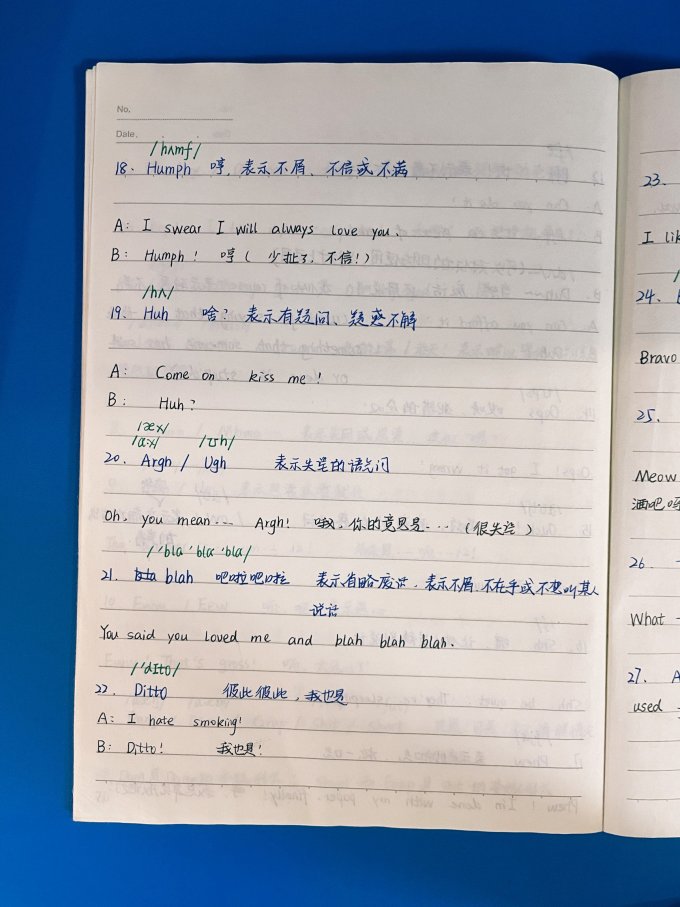 No.
Date.
/hʌmf/
18. Humph 哼, 表示不屑、不信或不满
A: I swear I will always love you.
B: Humph! 哼(少扯了, 不信!)
/hʌ/
19. Huh 啥? 表示有疑问、疑惑不解
A: Come on, kiss me!
B: Huh?
/æx/
/ɑːx/ /ʊh/
20. Argh / Ugh 表示失望的语气词
Oh, you mean... Argh! 哦, 你的意思是...(很失望)
/'bla 'bla 'bla/
21. blah 吧啦吧啦 表示省略废话, 表示不屑、不在乎或不想叫某人
说话
You said you loved me and blah blah blah.
/'dɪto/
22. Ditto 彼此彼此, 我也是
A: I hate smoking!
B: Ditto! 我也是!
23.
I lik
24.
Bravo
25.
Meow
酒吧吗
26.
What
27. A
used